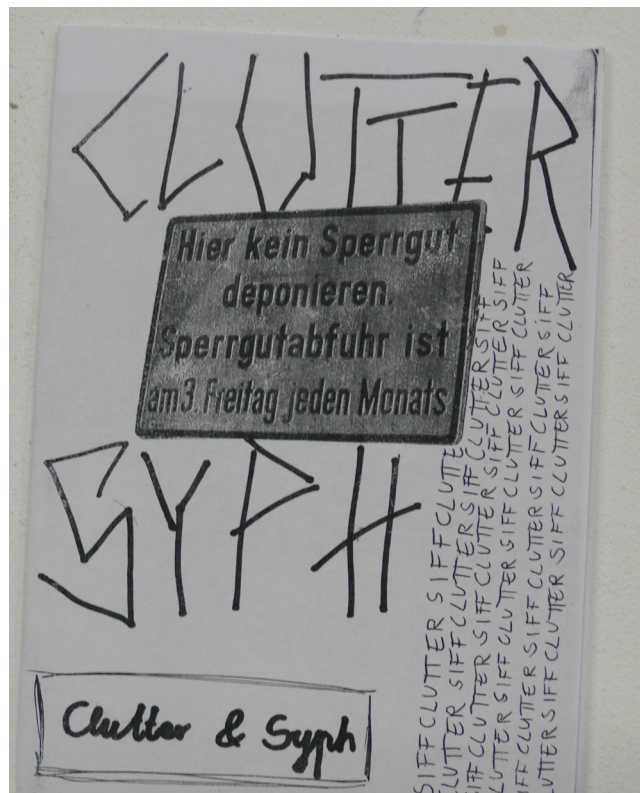 CLUTTER
Hier kein Sperrgut
deponieren.
Sperrgutabfuhr ist
am 3. Freitag jeden Monats
SYPH
Clutter & Syph
SIFF CLUTTER SIFF CLUTTER
CLUTTER SIFF CLUTTER SIFF CLUTTER SIFF
SIFF CLUTTER SIFF CLUTTER SIFF CLUTTER SIFF
CLUTTER SIFF CLUTTER SIFF CLUTTER SIFF CLUTTER
SIFF CLUTTER SIFF CLUTTER SIFF CLUTTER SIFF
CLUTTER SIFF CLUTTER SIFF CLUTTER SIFF CLUTTER